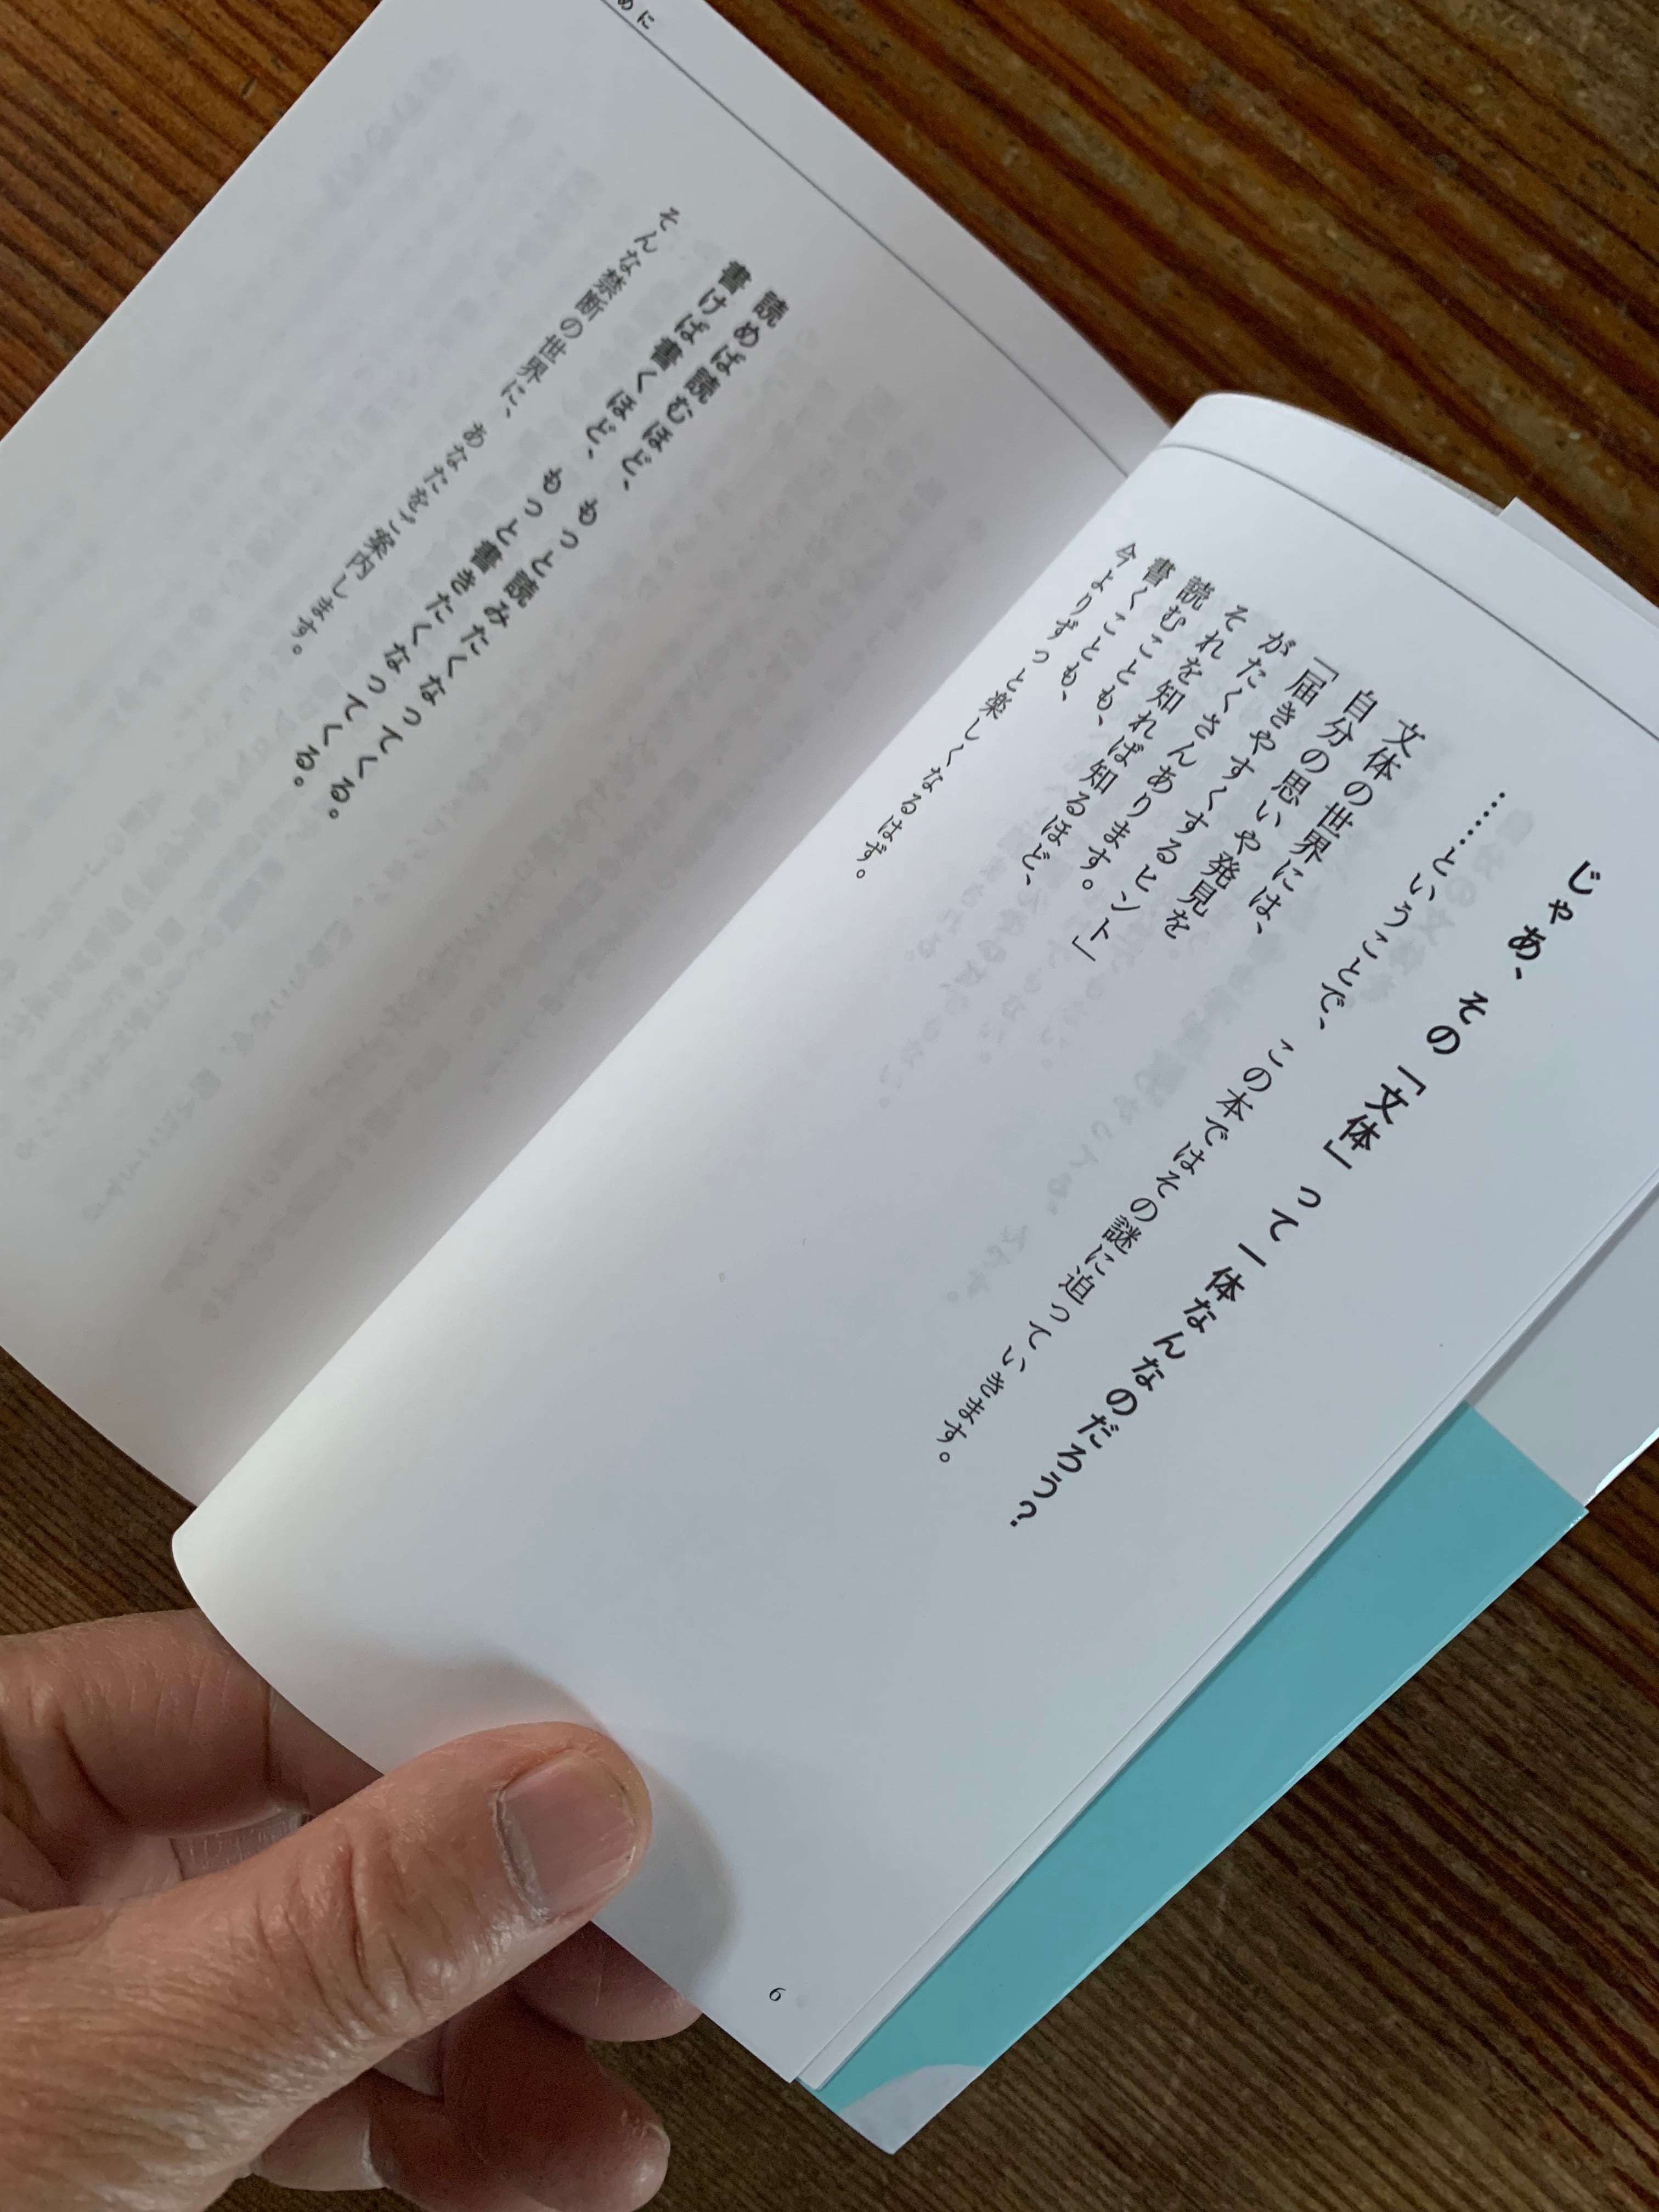 じゃあ、その「文体」って一体なんなのだろう？
……ということで、この本ではその謎に迫っていきます。
文体の世界には、
「自分の思いや発見を
届きやすくするヒント」
がたくさんあります。
それを知れば知るほど、
読むことも、
書くことも、
今よりずっと楽しくなるはず。
6
めに
読めば読むほど、もっと読みたくなってくる。
書けば書くほど、もっと書きたくなってくる。
そんな禁断の世界に、あなたをご案内します。